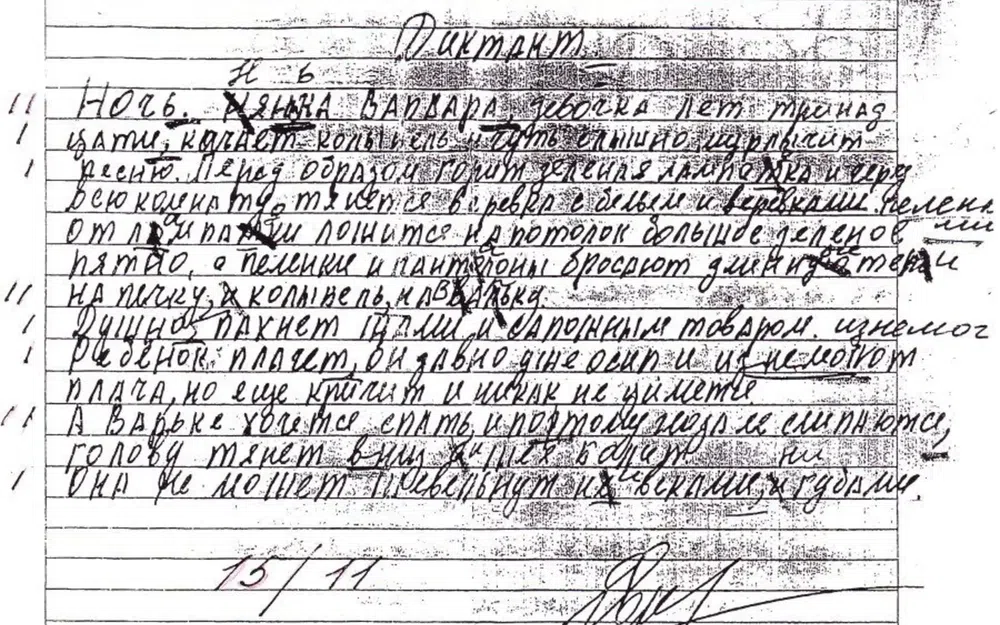 Диктант
Н ь
11 Ночь. Нянька Варвара, девочка лет тринад
1 цати, качает колыбель и чуть слышно мурлычит
1 песню. Перед образом горит зеленая лампатка и через
всю комнату тянется веревка с белым и веревками. пеленк
от лампатки ложится на потолок большое зеленое ми
пятно, а пеленки и панталоны бросают длин тени
11 на печку, колыбель, на Варька.
1 Душно, пахнет щами и сапожным товаром. изнемог
1 Ребенок плачет, он давно уже осип и изнемогот
плача, но еще кричит и никак не уиметя
11 А Варьке хочется спать, и поэтому глаза ее слипаются,
голову тянет вниз шея болит ни
1 Она не может шевельнут ни веками, губами.
15/11